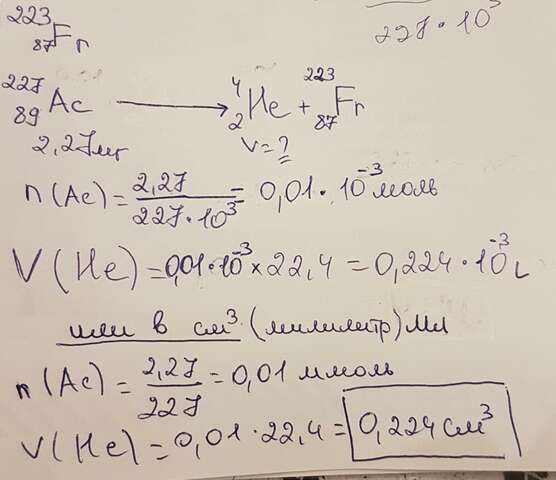 ²²³₈₇Fr
227·10³
²²⁷₈₉Ac ⟶ ⁴₂He + ²²³₈₇Fr
2,27мг V=?
n(Ac) = 2,27/227·10³ = 0,01·10⁻³ моль
V(He) = 0,01·10⁻³×22,4 = 0,224·10⁻³ L
или в см³ (милилитр) Мл
n(Ac) = 2,27/227 = 0,01 ммоль
V(He) = 0,01·22,4 = 0,224 см³